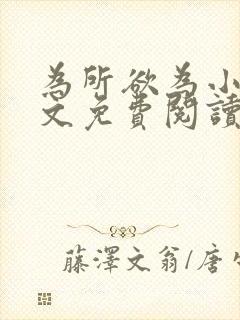 為所欲為小
文免費閱讀
藤澤文翁/唐